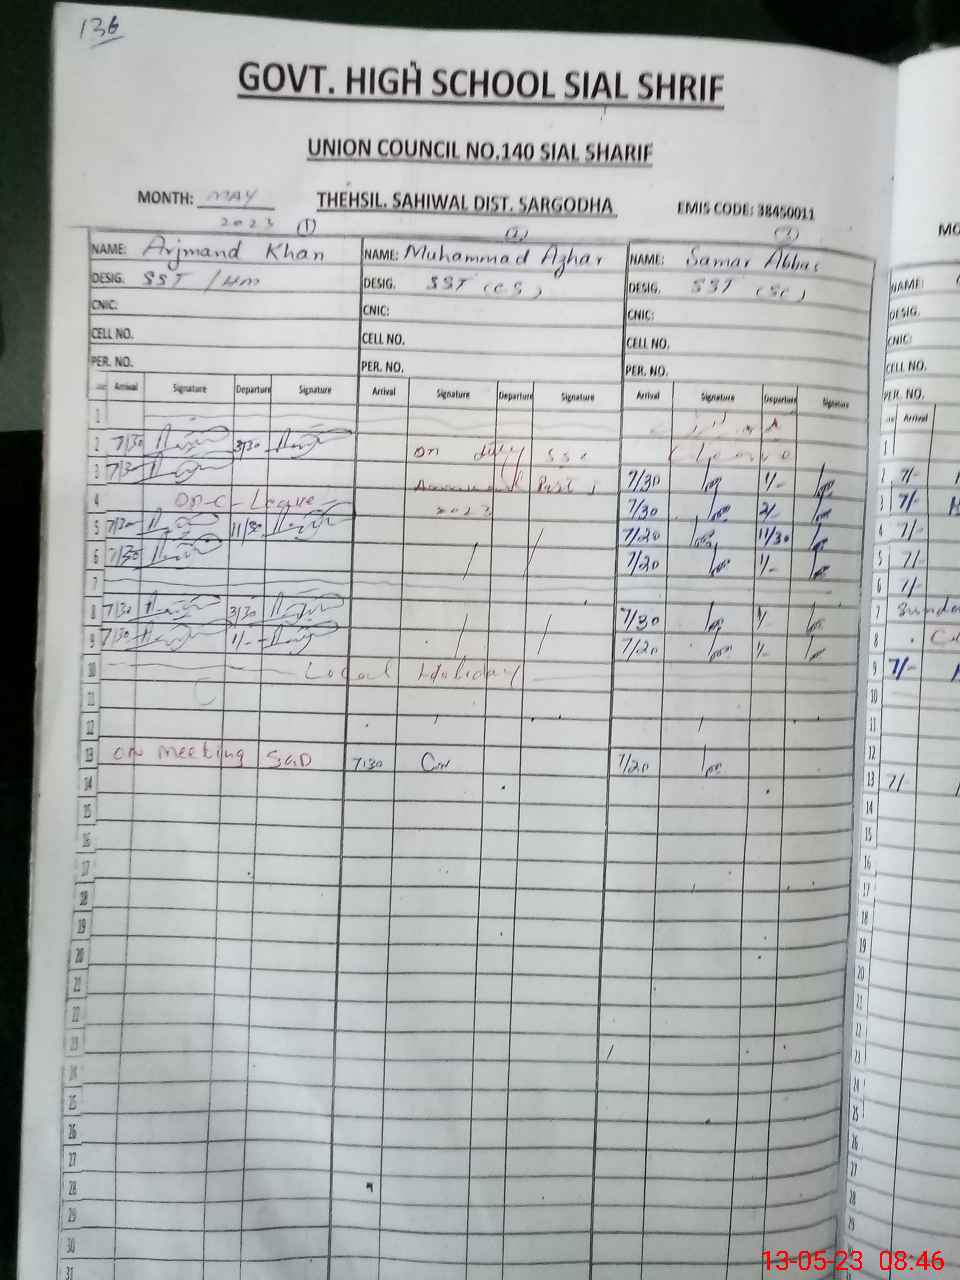 136
GOVT. HIGH SCHOOL SIAL SHRIF
UNION COUNCIL NO.140 SIAL SHARIF
MONTH: MAY THEHSIL. SAHIWAL DIST. SARGODHA EMIS CODE: 38450011
2023 (1) (2) (3)
NAME: Arjmand Khan NAME: Muhammad Azhar NAME: Samar Abbas NAME:
DESIG. SST / HM DESIG. SST (CS) DESIG. SST (Sc) DESIG.
CNIC: CNIC: CNIC: CNIC:
CELL NO. CELL NO. CELL NO. CELL NO.
PER. NO. PER. NO. PER. NO. PER. NO.
Arrival Signature Departure Signature Arrival Signature Departure Signature Arrival Signature Departure Signature Arrival
1 1
2 7/30 3/30 on duty SSC 2 7/-
3 7/30 7/30 1/- 3 7/-
4 on-C-Leave 2023 7/30 2/- 4 7/-
5 7/30 11/30 7/20 11/30 5 7/-
6 7/30 7/20 1/- 6 7/-
7 7
8 7/30 3/30 7/30 1/- 8
9 7/30 1/- 7/20 1/- 9 7/-
10 Local Holiday 10
11 11
12 12
13 on meeting SGD 7:30 7/20 13 7/-
14 14
15 15
16 16
17 17
18 18
19 19
20 20
21 21
22 22
23 23
24 24
25 25
26 26
27 27
28 28
29 29
30
31
13-05-23 08:46